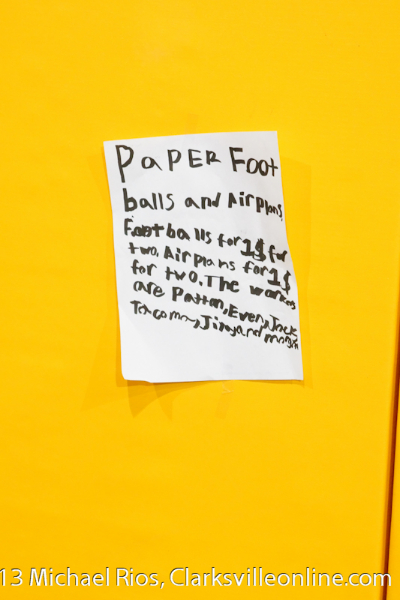 PaPER Foot
balls and Airplans
Football s for 1$ for
two. Air plans for 1$
for two. The workers
are Patton, Even, Jack
Tacoma, Jimy and
13 Michael Rios, Clarksvilleonline.com